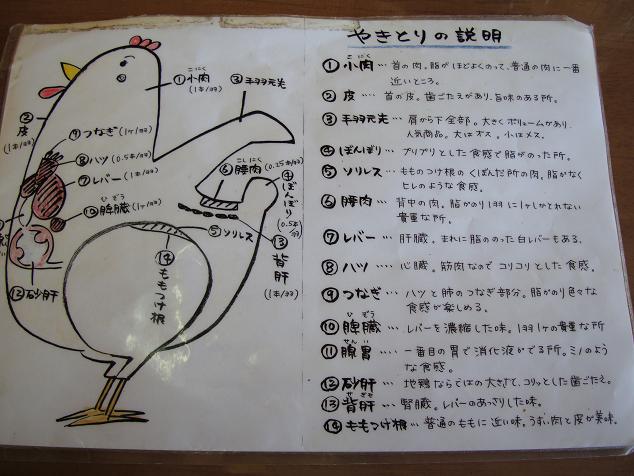 やきとりの説明
①小肉…首の肉。脂がほどよくのって、普通の肉に一番
こにく
近いところ。
②皮…首の皮。歯ごたえがあり、旨味のある所。
③手羽元先…肩から下全部。大きくボリュームがあり、
人気商品。大はオス。小はメス。
④ぼんぼり…プリプリとした食感で脂がのった所。
⑤ソリレス…もものつけ根のくぼんだ所の肉。脂がなく
ヒレのような食感。
⑥腰肉…背中の肉。脂がのり1羽に1ヶしかとれない
貴重な所。
⑦レバー…肝臓。まれに脂ののった白レバーもある。
⑧ハツ…心臓。筋肉なのでコリコリとした食感。
⑨つなぎ…ハツと肺のつなぎ部分。脂がのり色々な
食感が楽しめる。
ひぞう
⑩脾臓…レバーを濃縮した味。1羽1ヶの貴重な所
せんい
⑪腺胃…一番目の胃で消化液がでる所。ミノのよう
な食感。
⑫砂肝…地鶏ならではの大きさで、コリッとした歯ごたえ。
⑬背肝…腎臓。レバーのあっさりした味。
⑭ももつけ根…普通のももに近い味。うすい肉と皮が美味。
こにく
①小肉
(1本/羽)
③手羽元先
②皮
(1本/羽)
⑨つなぎ(1ヶ/羽)
⑧ハツ(0.5本/羽)
⑦レバー(1本/羽)
ひぞう
⑩脾臓(1ヶ/羽)
こしにく
⑥腰肉
(0.25本/羽)
④ぼんぼり
⑤ソリレス
⑬背肝
(1本/羽)
⑭ももつけ根
⑫砂肝